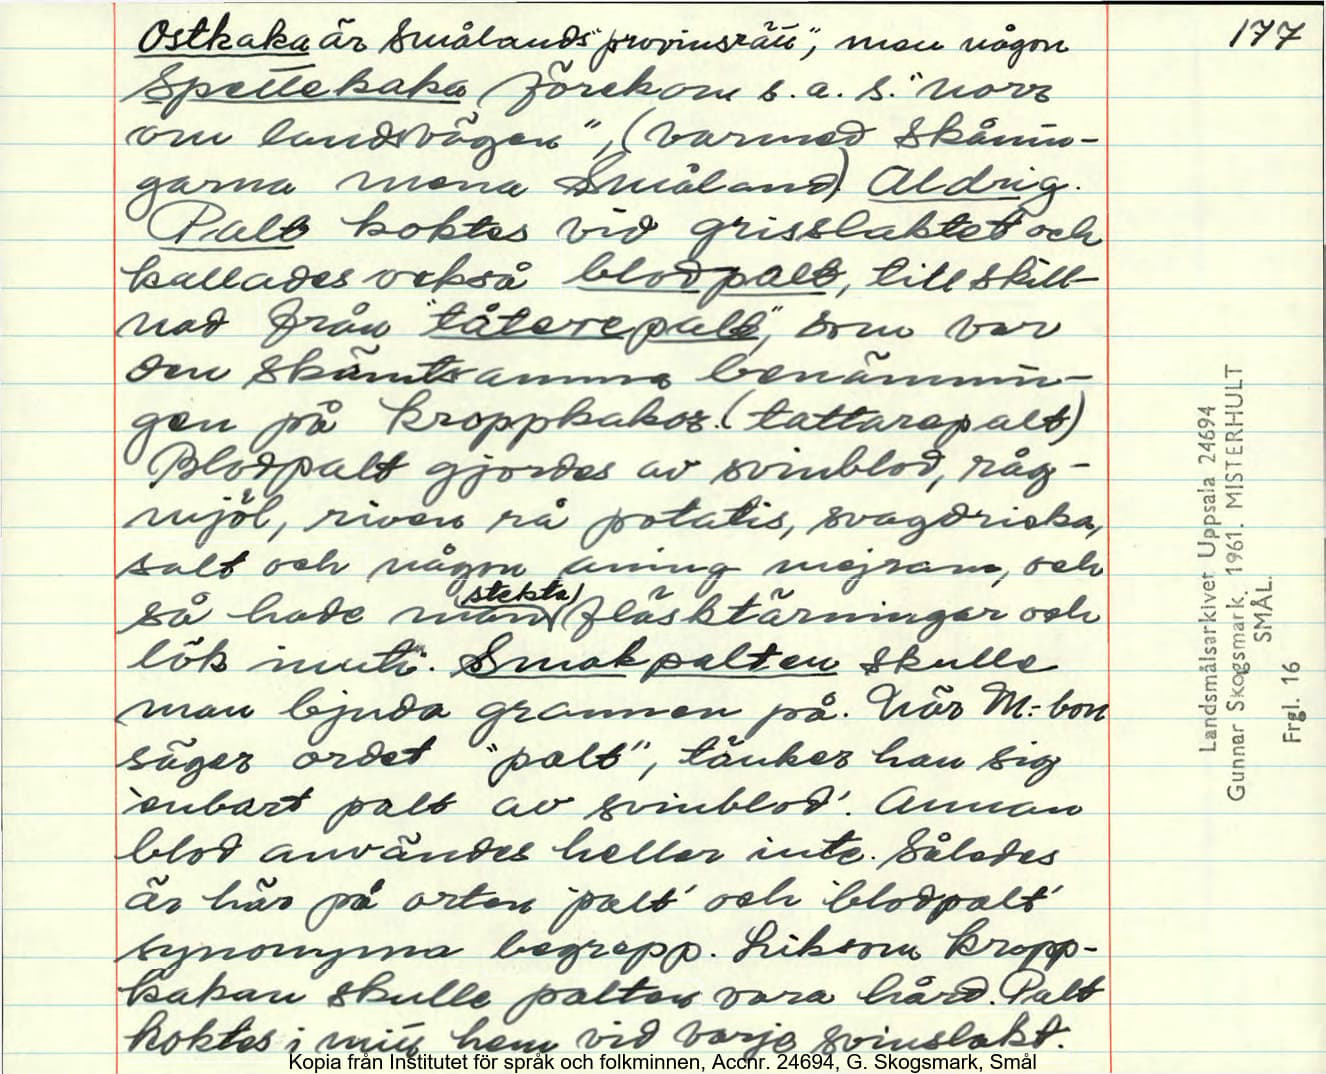 177
Ostkaka är Smålands "provinsrätt", men någon
Spettekaka förekom s.a.s. "norr
om landsvägen", (varmed skånin-
garna mena Småland). Aldrig.
Palt koktes vid grisslaktet och
kallades också blodpalt, till skill-
nad från "tåterepalt", som var
den skämtsamma benämnin-
gen på kroppkakor. (tattarepalt)
Blodpalt gjordes av svinblod, råg-
mjöl, riven rå potatis, svagdricka,
salt och någon aning mejram, och
så hade man stekta fläsktärningar och
lök inuti. Smakpalten skulle
man bjuda grannen på. När M:-bon
säger ordet "palt", tänker han sig
enbart palt av svinblod. Annan
blod användes heller inte. Således
är här på orten 'palt' och 'blodpalt'
synonyma begrepp. Liksom kropp-
kakan skulle palten vara hård. Palt
koktes i mitt hem vid varje svinslakt.
Landsmålsarkivet Uppsala 24694
Gunnar Skogsmark. 1961. MISTERHULT
SMÅL.
Frgl. 16
Kopia från Institutet för språk och folkminnen, Accnr. 24694, G. Skogsmark, Smål